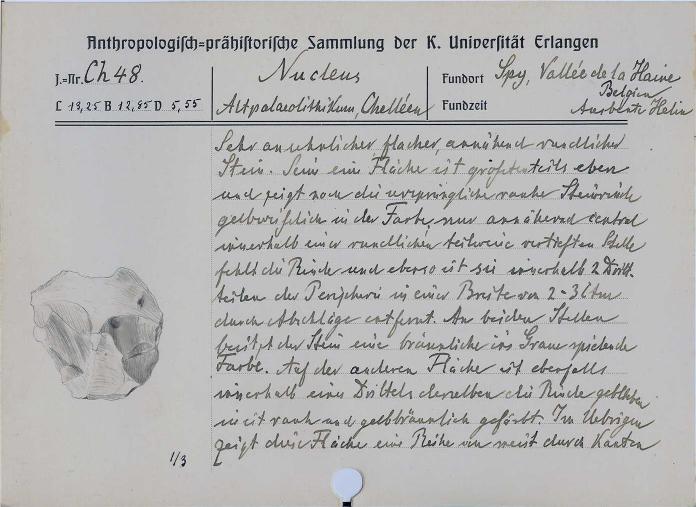 Anthropologisch=prähistorische Sammlung der K. Universität Erlangen
J.=Nr. Ch 48.
Nucleus
Fundort Spy, Vallée de la Haine
Belgien
L 13,25 B 12,85 D 5,55
Altpalaeolithikum, Chelléen
Fundzeit Ausbeute Helin
Sehr ansehnlicher flacher, annähend rundlicher
Stein. Sein eine Fläche ist größtenteils eben
und zeigt noch die ursprüngliche rauhe Steinrinde
gelbweißlich in der Farbe, nur annähernd central
innerhalb einer rundlichen teilweise vertieften Stelle
fehlt die Rinde und ebenso ist sie innerhalb 2 Dritt-
teilen der Peripherie in einer Breite von 2-3 Ctm
durch Abschläge entfernt. An beiden Stellen
besitzt der Stein eine bräunliche ins Graue spielende
Farbe. Auf der anderen Fläche ist ebenfalls
innerhalb eines Drittels derselben die Rinde geblieben
ist rauh und gelbbräunlich gefärbt. Im Uebrigen
zeigt diese Fläche eine Reihe von meist durch Kanten
1/3